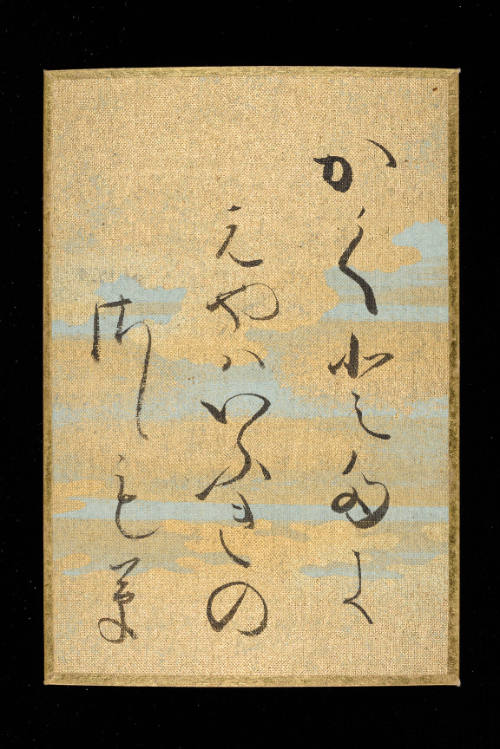 かくとたに
えやハいふきの
さしも草